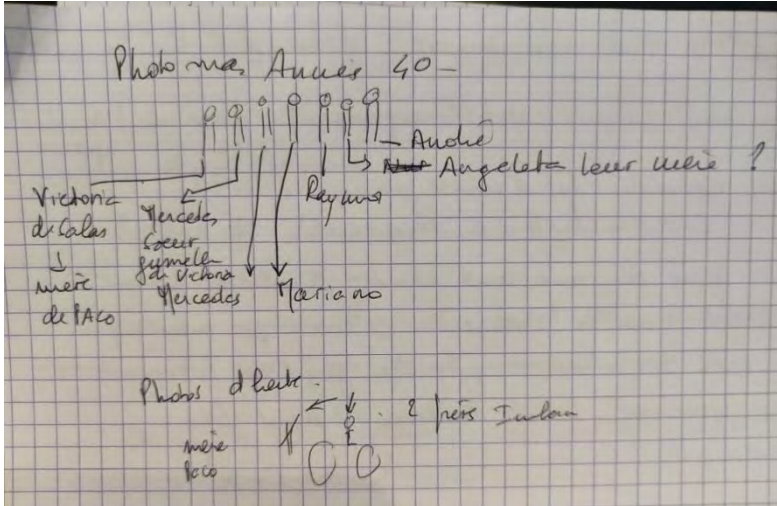 Photo mas Années 40 -
André
Angeleta leur mère ?
Raymond
Victoria
de Salas
mère
de PACO
Mercedes
Soeur
jumelle
de Victoria
Mercedes
Mariano
Photos d
mère
Paco
2